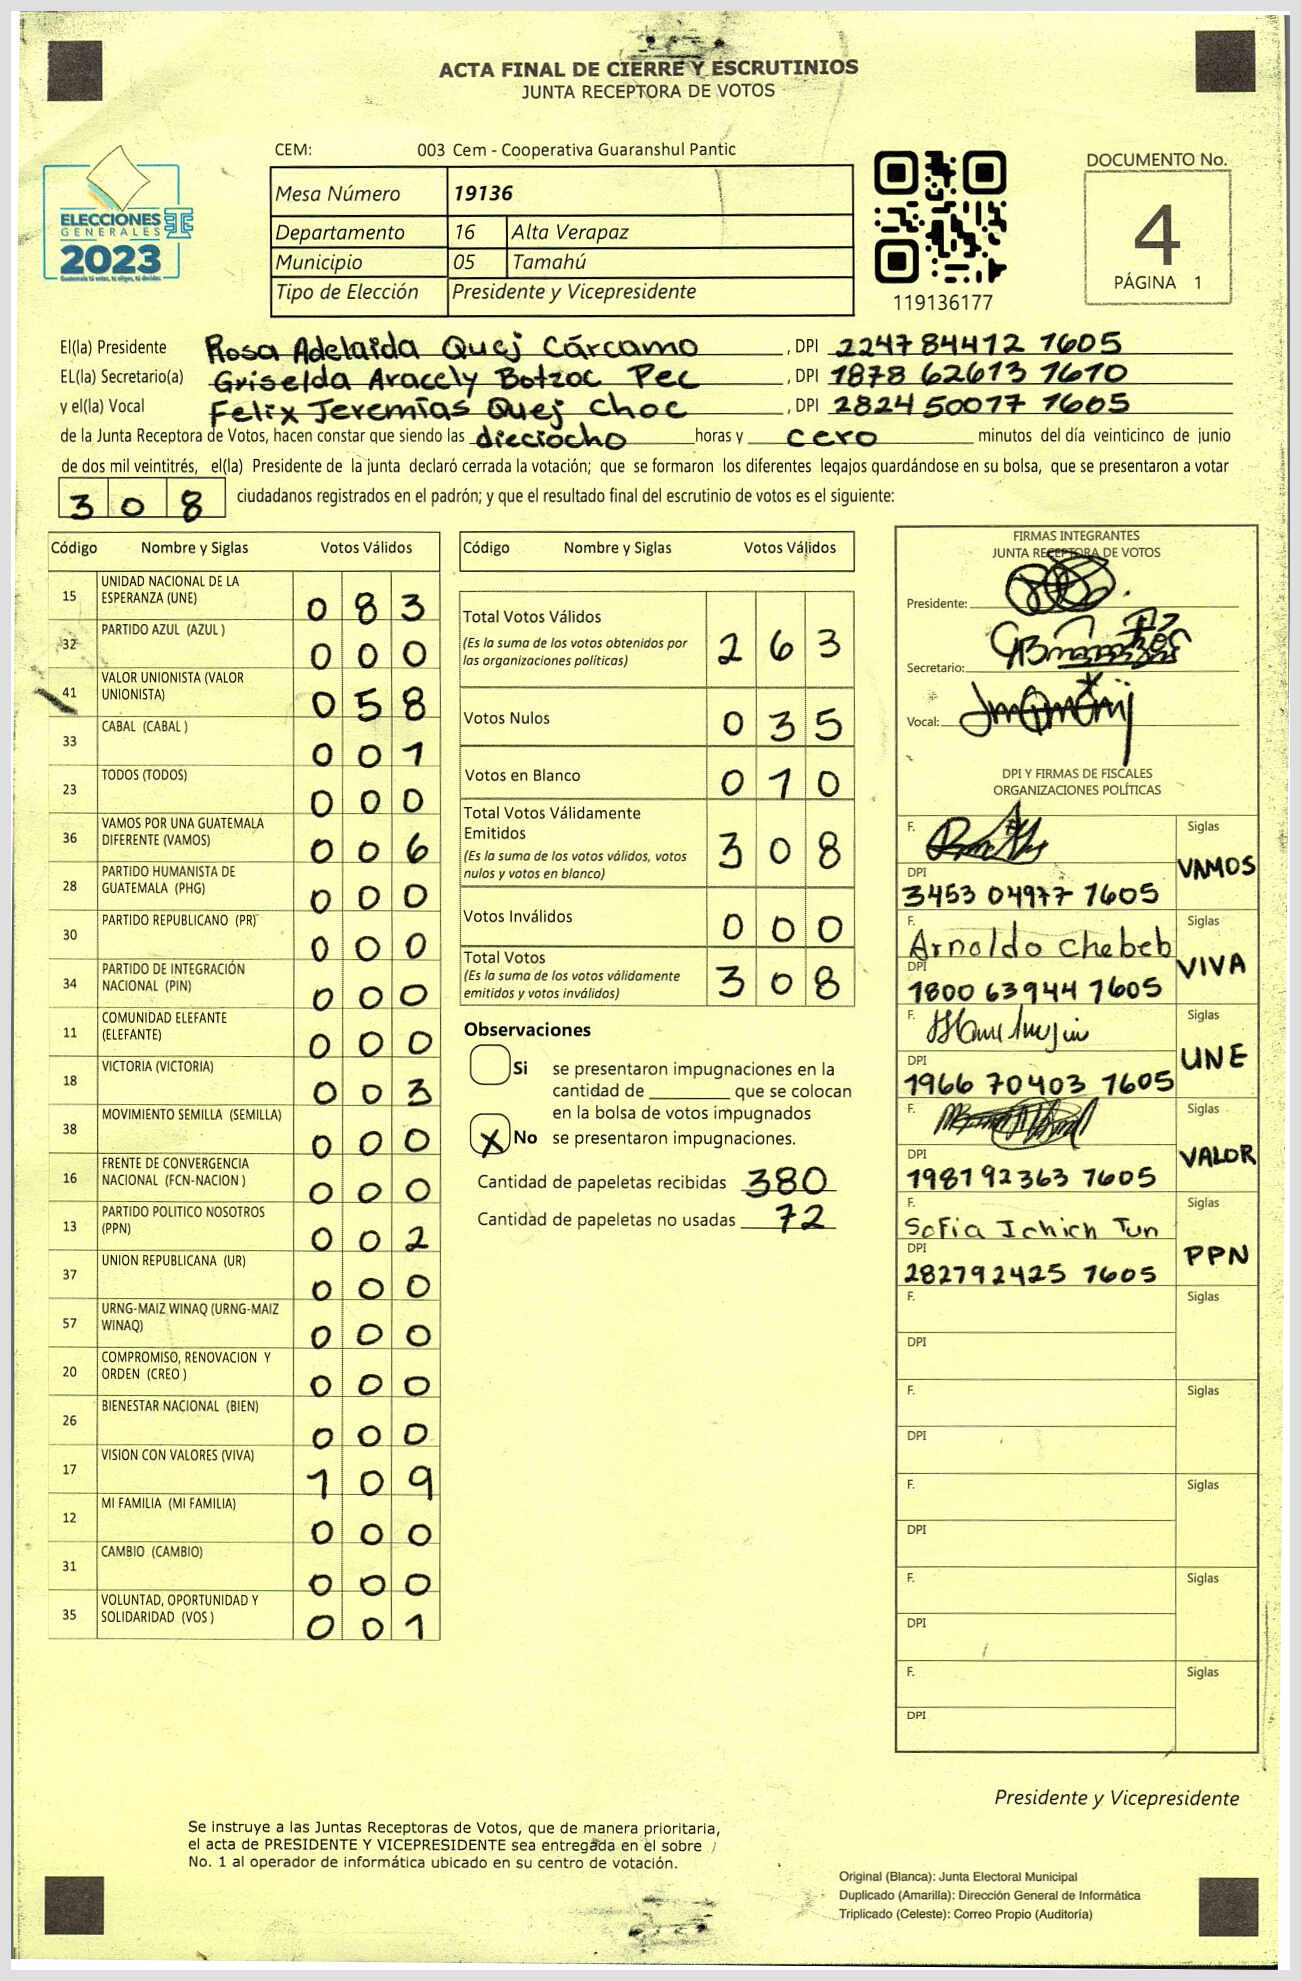 ACTA FINAL DE CIERRE Y ESCRUTINIOS
JUNTA RECEPTORA DE VOTOS
CEM: 003 Cem - Cooperativa Guaranshul Pantic
Mesa Número 19136
Departamento 16 Alta Verapaz
Municipio 05 Tamahú
Tipo de Elección Presidente y Vicepresidente
ELECCIONES
GENERALES
2023
119136177
DOCUMENTO No.
4
PÁGINA 1
El(la) Presidente Rosa Adelaida Quej Cárcamo , DPI 2247 84412 1605
EL(la) Secretario(a) Griselda Aracely Botzoc Pec , DPI 1878 62613 1610
y el(la) Vocal Felix Jeremías Quej Choc , DPI 2824 50077 1605
de la Junta Receptora de Votos, hacen constar que siendo las dieciocho horas y cero minutos del día veinticinco de junio
de dos mil veintitrés, el(la) Presidente de la junta declaró cerrada la votación; que se formaron los diferentes legajos guardándose en su bolsa, que se presentaron a votar
308 ciudadanos registrados en el padrón; y que el resultado final del escrutinio de votos es el siguiente:
Código Nombre y Siglas Votos Válidos
15 UNIDAD NACIONAL DE LA ESPERANZA (UNE) 083
32 PARTIDO AZUL (AZUL ) 000
41 VALOR UNIONISTA (VALOR UNIONISTA) 058
33 CABAL (CABAL ) 001
23 TODOS (TODOS) 000
36 VAMOS POR UNA GUATEMALA DIFERENTE (VAMOS) 006
28 PARTIDO HUMANISTA DE GUATEMALA (PHG) 000
30 PARTIDO REPUBLICANO (PR) 000
34 PARTIDO DE INTEGRACIÓN NACIONAL (PIN) 000
11 COMUNIDAD ELEFANTE (ELEFANTE) 000
18 VICTORIA (VICTORIA) 003
38 MOVIMIENTO SEMILLA (SEMILLA) 000
16 FRENTE DE CONVERGENCIA NACIONAL (FCN-NACION ) 000
13 PARTIDO POLITICO NOSOTROS (PPN) 002
37 UNION REPUBLICANA (UR) 000
57 URNG-MAIZ WINAQ (URNG-MAIZ WINAQ) 000
20 COMPROMISO, RENOVACION Y ORDEN (CREO ) 000
26 BIENESTAR NACIONAL (BIEN) 000
17 VISION CON VALORES (VIVA) 109
12 MI FAMILIA (MI FAMILIA) 000
31 CAMBIO (CAMBIO) 000
35 VOLUNTAD, OPORTUNIDAD Y SOLIDARIDAD (VOS ) 001
Código Nombre y Siglas Votos Válidos
Total Votos Válidos 263
(Es la suma de los votos obtenidos por
las organizaciones políticas)
Votos Nulos 035
Votos en Blanco 010
Total Votos Válidamente
Emitidos 308
(Es la suma de los votos válidos, votos
nulos y votos en blanco)
Votos Inválidos 000
Total Votos 308
(Es la suma de los votos válidamente
emitidos y votos inválidos)
Observaciones
Si se presentaron impugnaciones en la
cantidad de ________ que se colocan
en la bolsa de votos impugnados
X No se presentaron impugnaciones.
Cantidad de papeletas recibidas 380
Cantidad de papeletas no usadas 72
FIRMAS INTEGRANTES
JUNTA RECEPTORA DE VOTOS
Presidente:
Secretario:
Vocal:
DPI Y FIRMAS DE FISCALES
ORGANIZACIONES POLÍTICAS
F. Siglas VAMOS
DPI 3453 04977 1605
F. Arnoldo Chebeb Siglas VIVA
DPI 1800 63944 1605
F. Siglas UNE
DPI 1966 70403 1605
F. Siglas VALOR
DPI 1981 92363 1605
F. Sofia Ichich Tun Siglas PPN
DPI 2827 92425 1605
F. Siglas
DPI
F. Siglas
DPI
F. Siglas
DPI
F. Siglas
DPI
F. Siglas
DPI
Presidente y Vicepresidente
Se instruye a las Juntas Receptoras de Votos, que de manera prioritaria,
el acta de PRESIDENTE Y VICEPRESIDENTE sea entregada en el sobre
No. 1 al operador de informática ubicado en su centro de votación.
Original (Blanca): Junta Electoral Municipal
Duplicado (Amarilla): Dirección General de Informática
Triplicado (Celeste): Correo Propio (Auditoría)